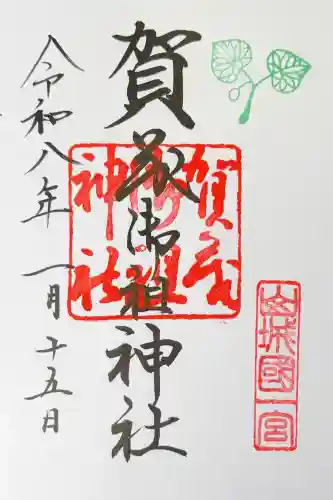 山城國一宮
賀茂御祖神社
賀茂御祖神社
令和八年 一月 十五日